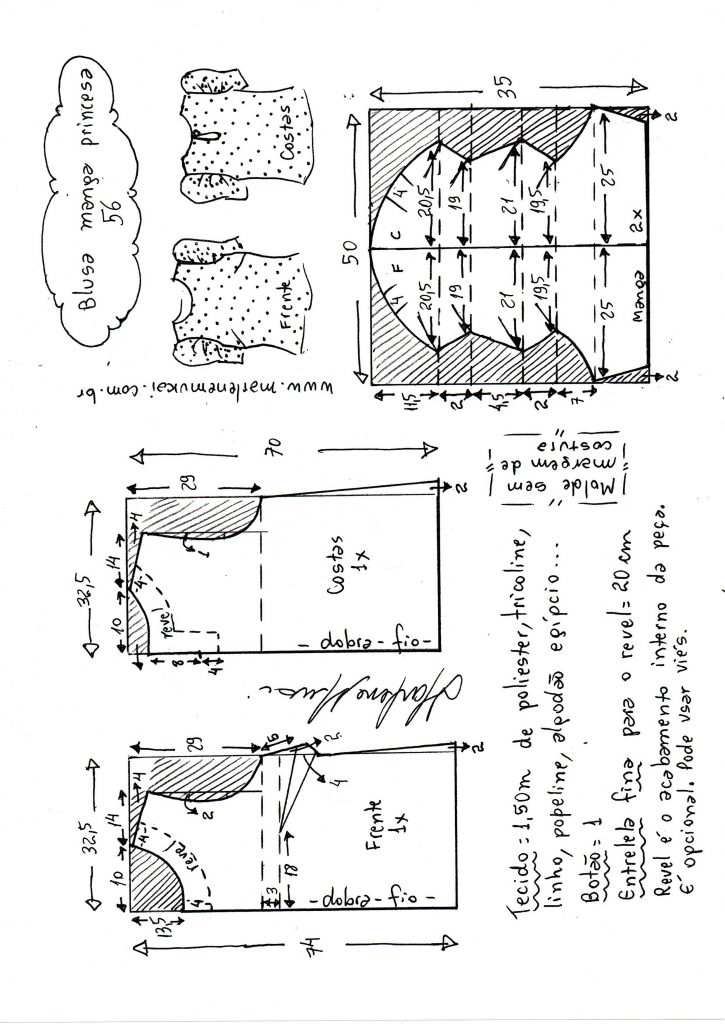 Blusa manga princesa
56
Costas
Frente
www.marlenemukai.com.br
50
35
C
F
4
4
20,5
20,5
19
19
21
21
19,5
19,5
25
25
manga
2x
11,5
2
4,5
2
7
2
2
Molde sem
margem de
costura
32,5
10
14
4
4
29
70
1
revel
8
4
Costas
1x
-dobra-fio-
2
32,5
10
14
4
4
29
6
2
2
4
revel
4
13,5
3
18
Frente
1x
-dobra-fio-
74
2
Tecido = 1,50m de poliester, tricoline,
linho, popeline, algodão egípcio...
Botão = 1
Entretela fina para o revel = 20 cm
Revel é o acabamento interno da peça.
É opcional. Pode usar viés.